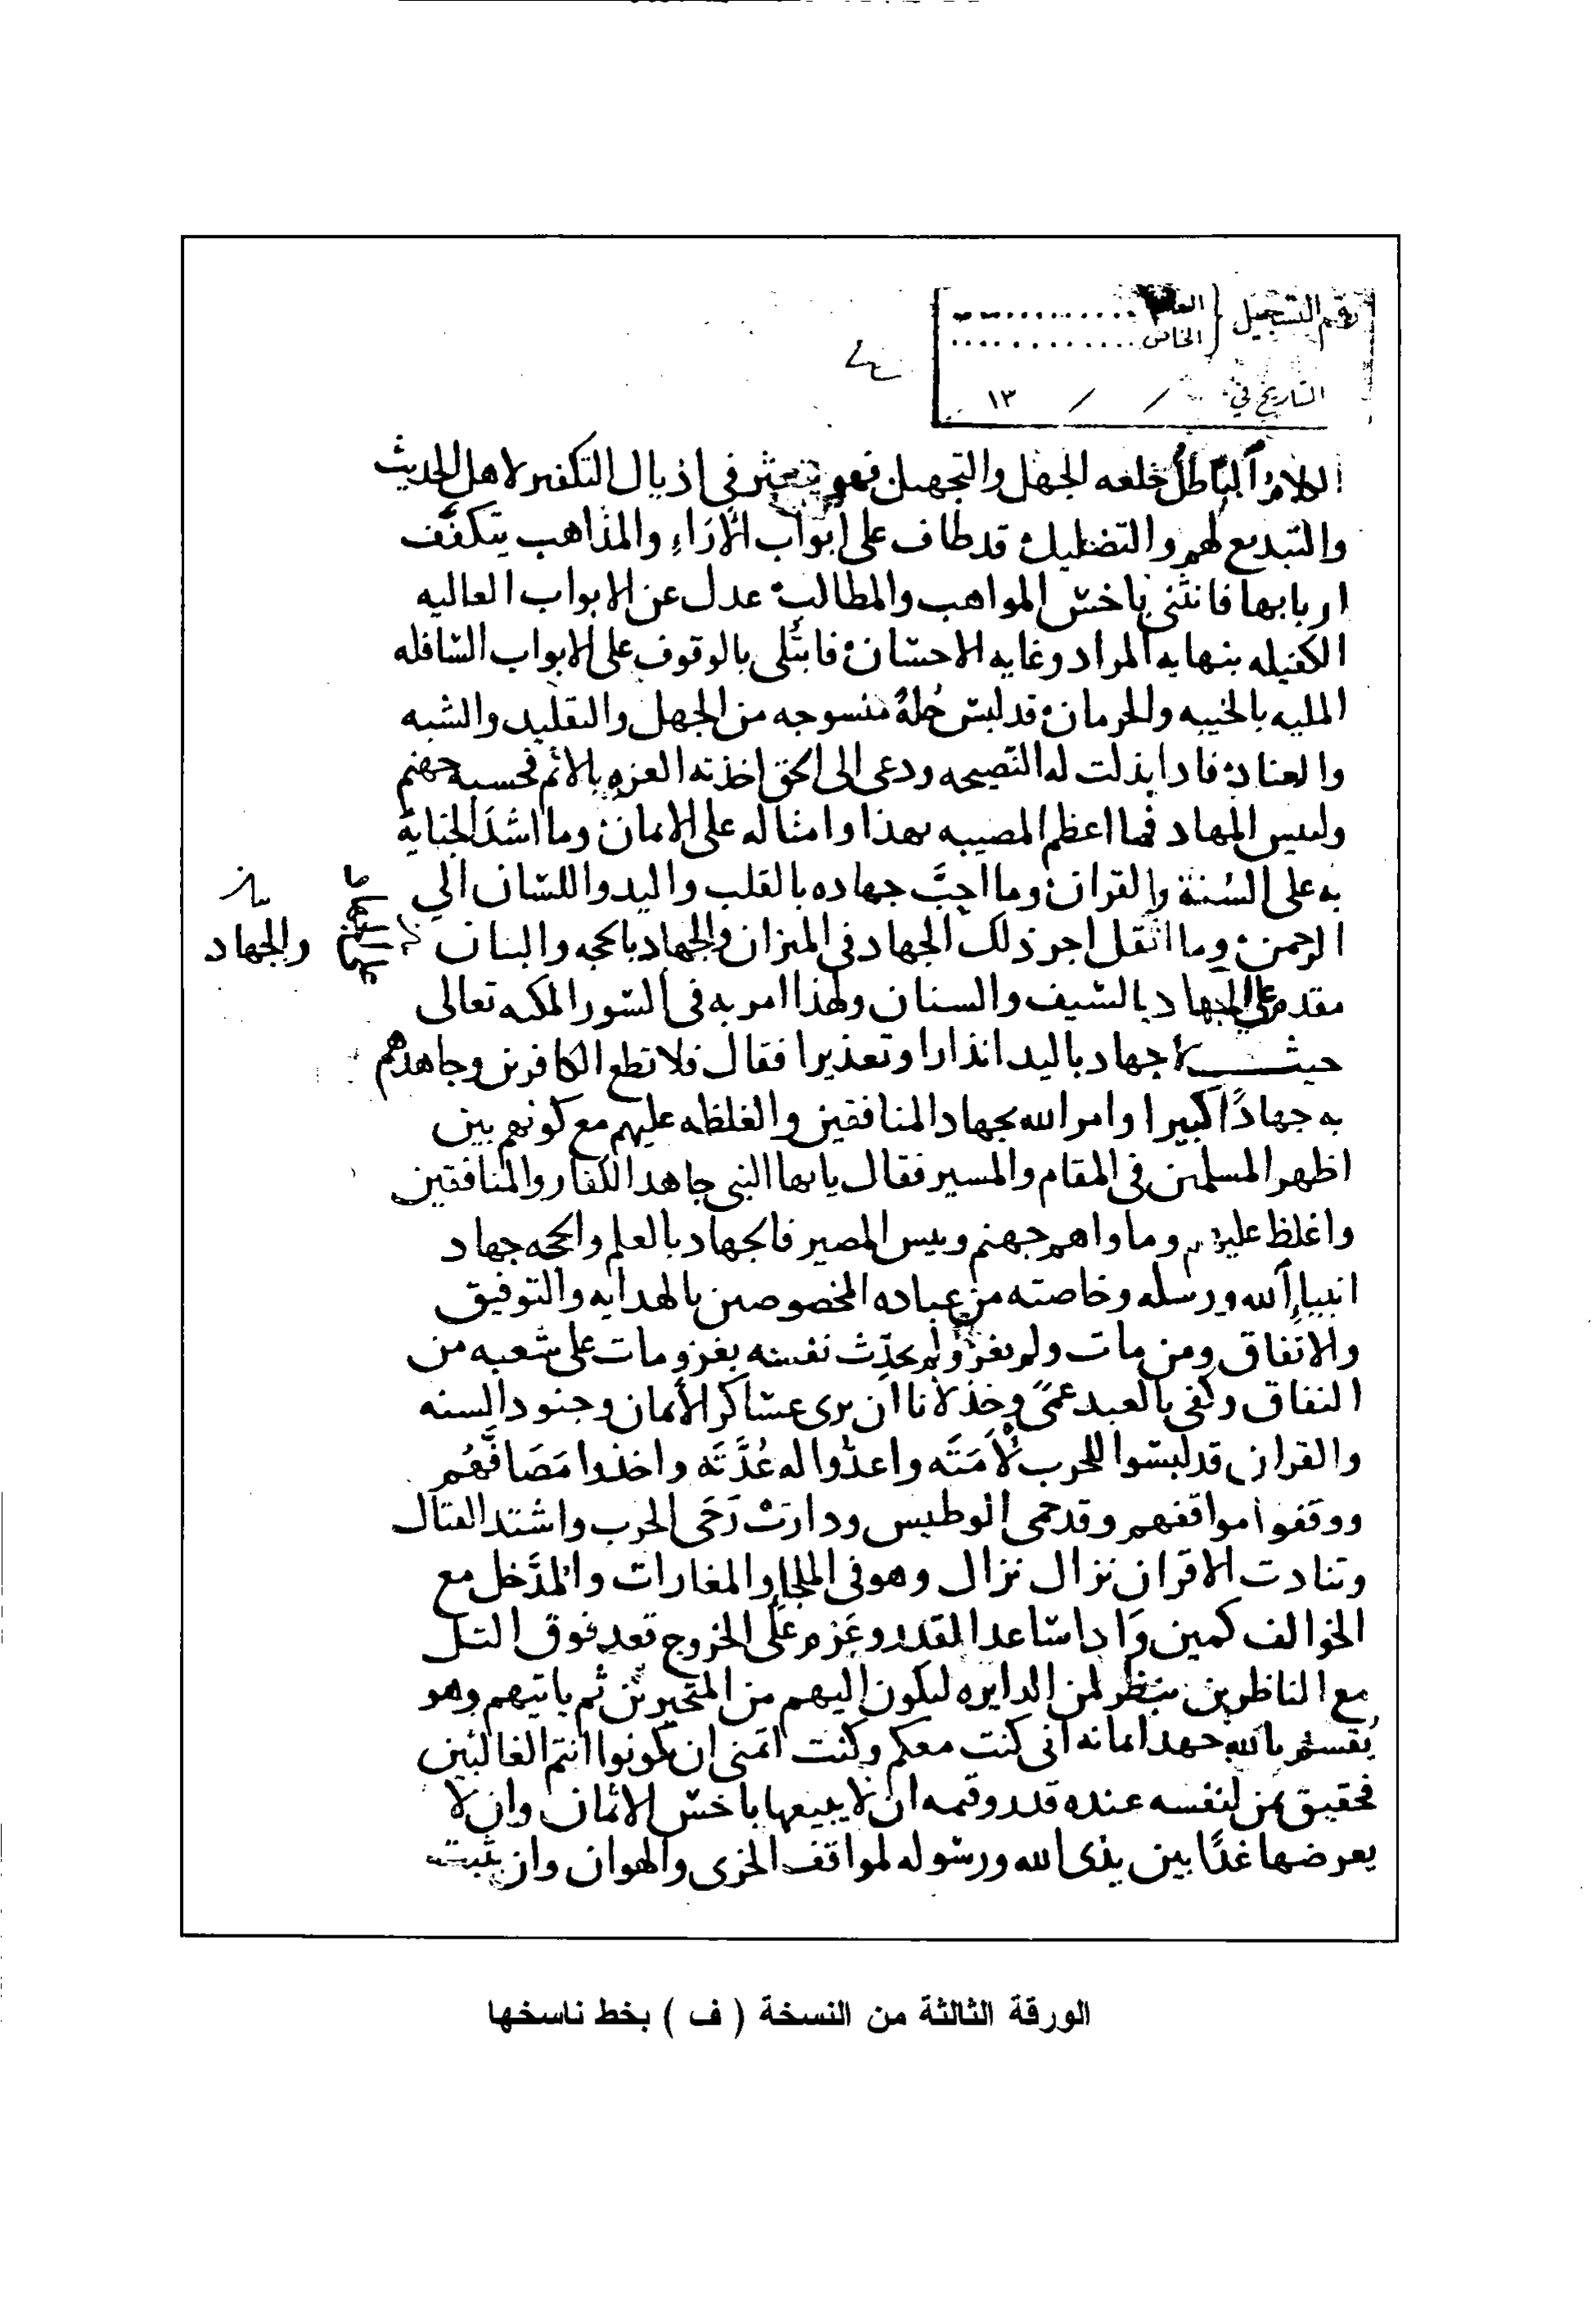 رقم التسجيل { العام
الخاص
التاريخ في / / ١٣
الباطل خلعه الجهل والتجهيل فهو يتعثر في اذيال التكفير لاهل الحديث
والتبديع لهم والتضليل قد طاف على ابواب الآراء والمذاهب يتكفف
اربابها فانثنى باخس المواهب والمطالب عدل عن الابواب العاليه
الكفيله بنهايه المراد وغايه الاحسان فابتلى بالوقوف على الابواب السافله
المليه بالخيبه والحرمان قد لبس حُلةً منسوجه من الجهل والتقليد والشبه
والعناد فاذا بذلت له النصيحه ودعى الى الحق اخذته العزه بالاثم فحسبه جهنم
ولبيس المهاد فما اعظم المصيبه بهذا وامثاله على الايمان وما اشد الجنايه
به على السنة والقران وما احبَّ جهاده بالقلب واليد واللسان الي
الرحمن وما اثقل اجر ذلك الجهاد في الميزان والجهاد بالحجه والبنان
والجهاد
مقدم على الجهاد بالسيف والسنان ولهذا امر به في السور المكيه تعالى
حيث لا جهاد باليد انذارا وتعذيرا فقال فلا تطع الكافرين وجاهدهم
به جهادًا كبيرا وامر الله بجهاد المنافقين والغلظه عليهم مع كونهم بين
اظهر المسلمين في المقام والمسير فقال يا يها النبي جاهد الكفار والمنافقين
واغلظ عليهم وماواهم جهنم وبيس المصير فالجهاد بالعلم والحجه جهاد
انبياء الله ورسله وخاصته من عباده المخصوصين بالهدايه والتوفيق
والاتفاق ومن مات ولم يغز ولم يحدِّث نفسه بغزو مات على شعبه من
النفاق وكفى بالعبد عمًى وخذلانا ان يرى عساكر الأيمان وجنود السنه
والقران قد لبسوا للحرب لأمَتَه واعدّوا له عُدَّتَه واخذوا مَصَافَّهُم
ووقفوا مواقفهم وقد حمى الوطيس ودارت رَحَى الحرب واشتد القتال
وتنادت الاقران نزال نزال وهو في الملجا والمغارات والمدَّخل مع
الخوالف كمين وَاذا ساعد القدر وعَزم على الخروج قعد فوق التل
مع الناظرين ينظر لمن الدايره ليكون اليهم من المتحيزين ثم ياتيهم وهو
يُقسم بالله جهد ايمانه اني كنت معكم وكنت اتمنى ان تكونوا انتم الغالبين
فحقيق بمن لنفسه عنده قدر وقيمه ان لا يبيعها باخس الاثمان وان لا
يعرضها غدًا بين يدى الله ورسوله لمواقف الخزى والهوان وان يثبت
الورقة الثالثة من النسخة ( ف ) بخط ناسخها